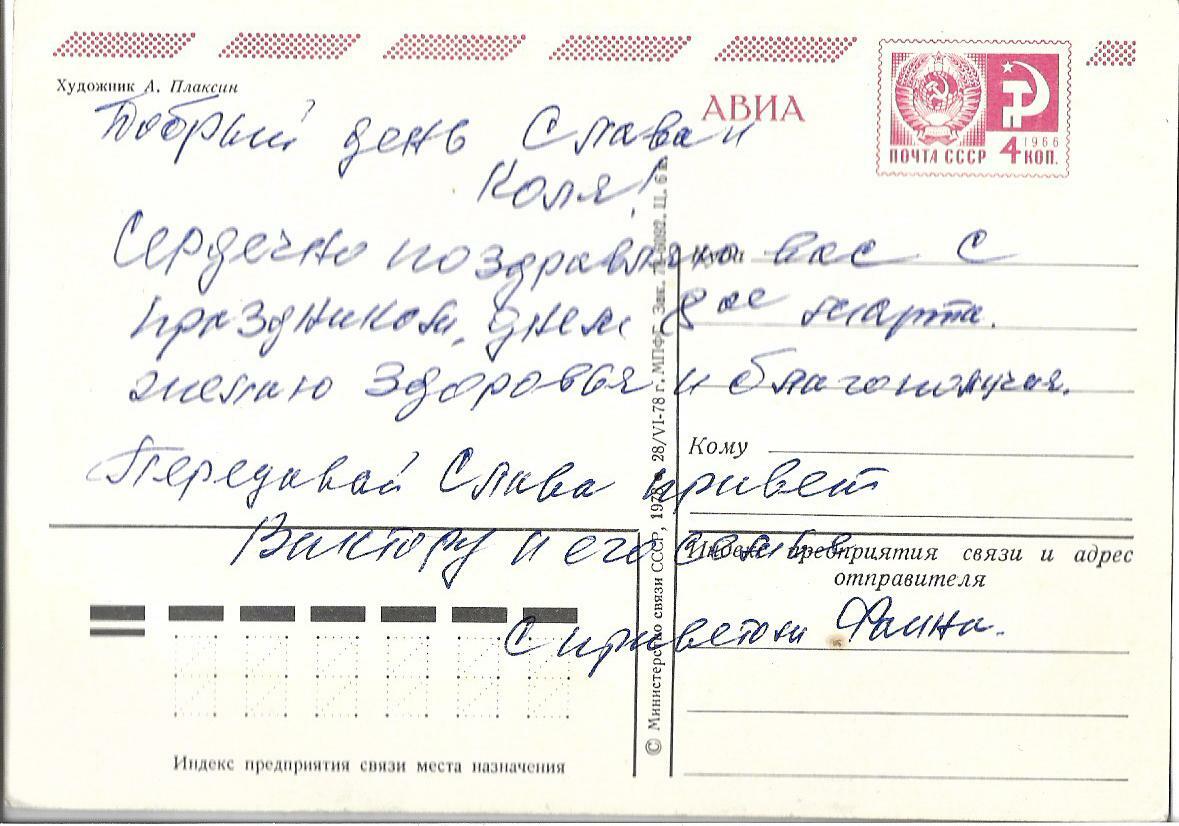 Художник А. Плаксин
АВИА
ПОЧТА СССР 4 КОП.
1966
Добрый день Слава и
Коля!
Сердечно поздравляю вас с
праздником, днем 8ое марта.
желаю здоровья и благополучия.
Передавай Слава привет
Виктору и его семье
С приветом Фаина.
Куда
Кому
Индекс предприятия связи и адрес
отправителя
Индекс предприятия связи места назначения
© Министерство связи СССР, 1978 28/VI-78 г. МПФГ. Зак. Ц. 6 к